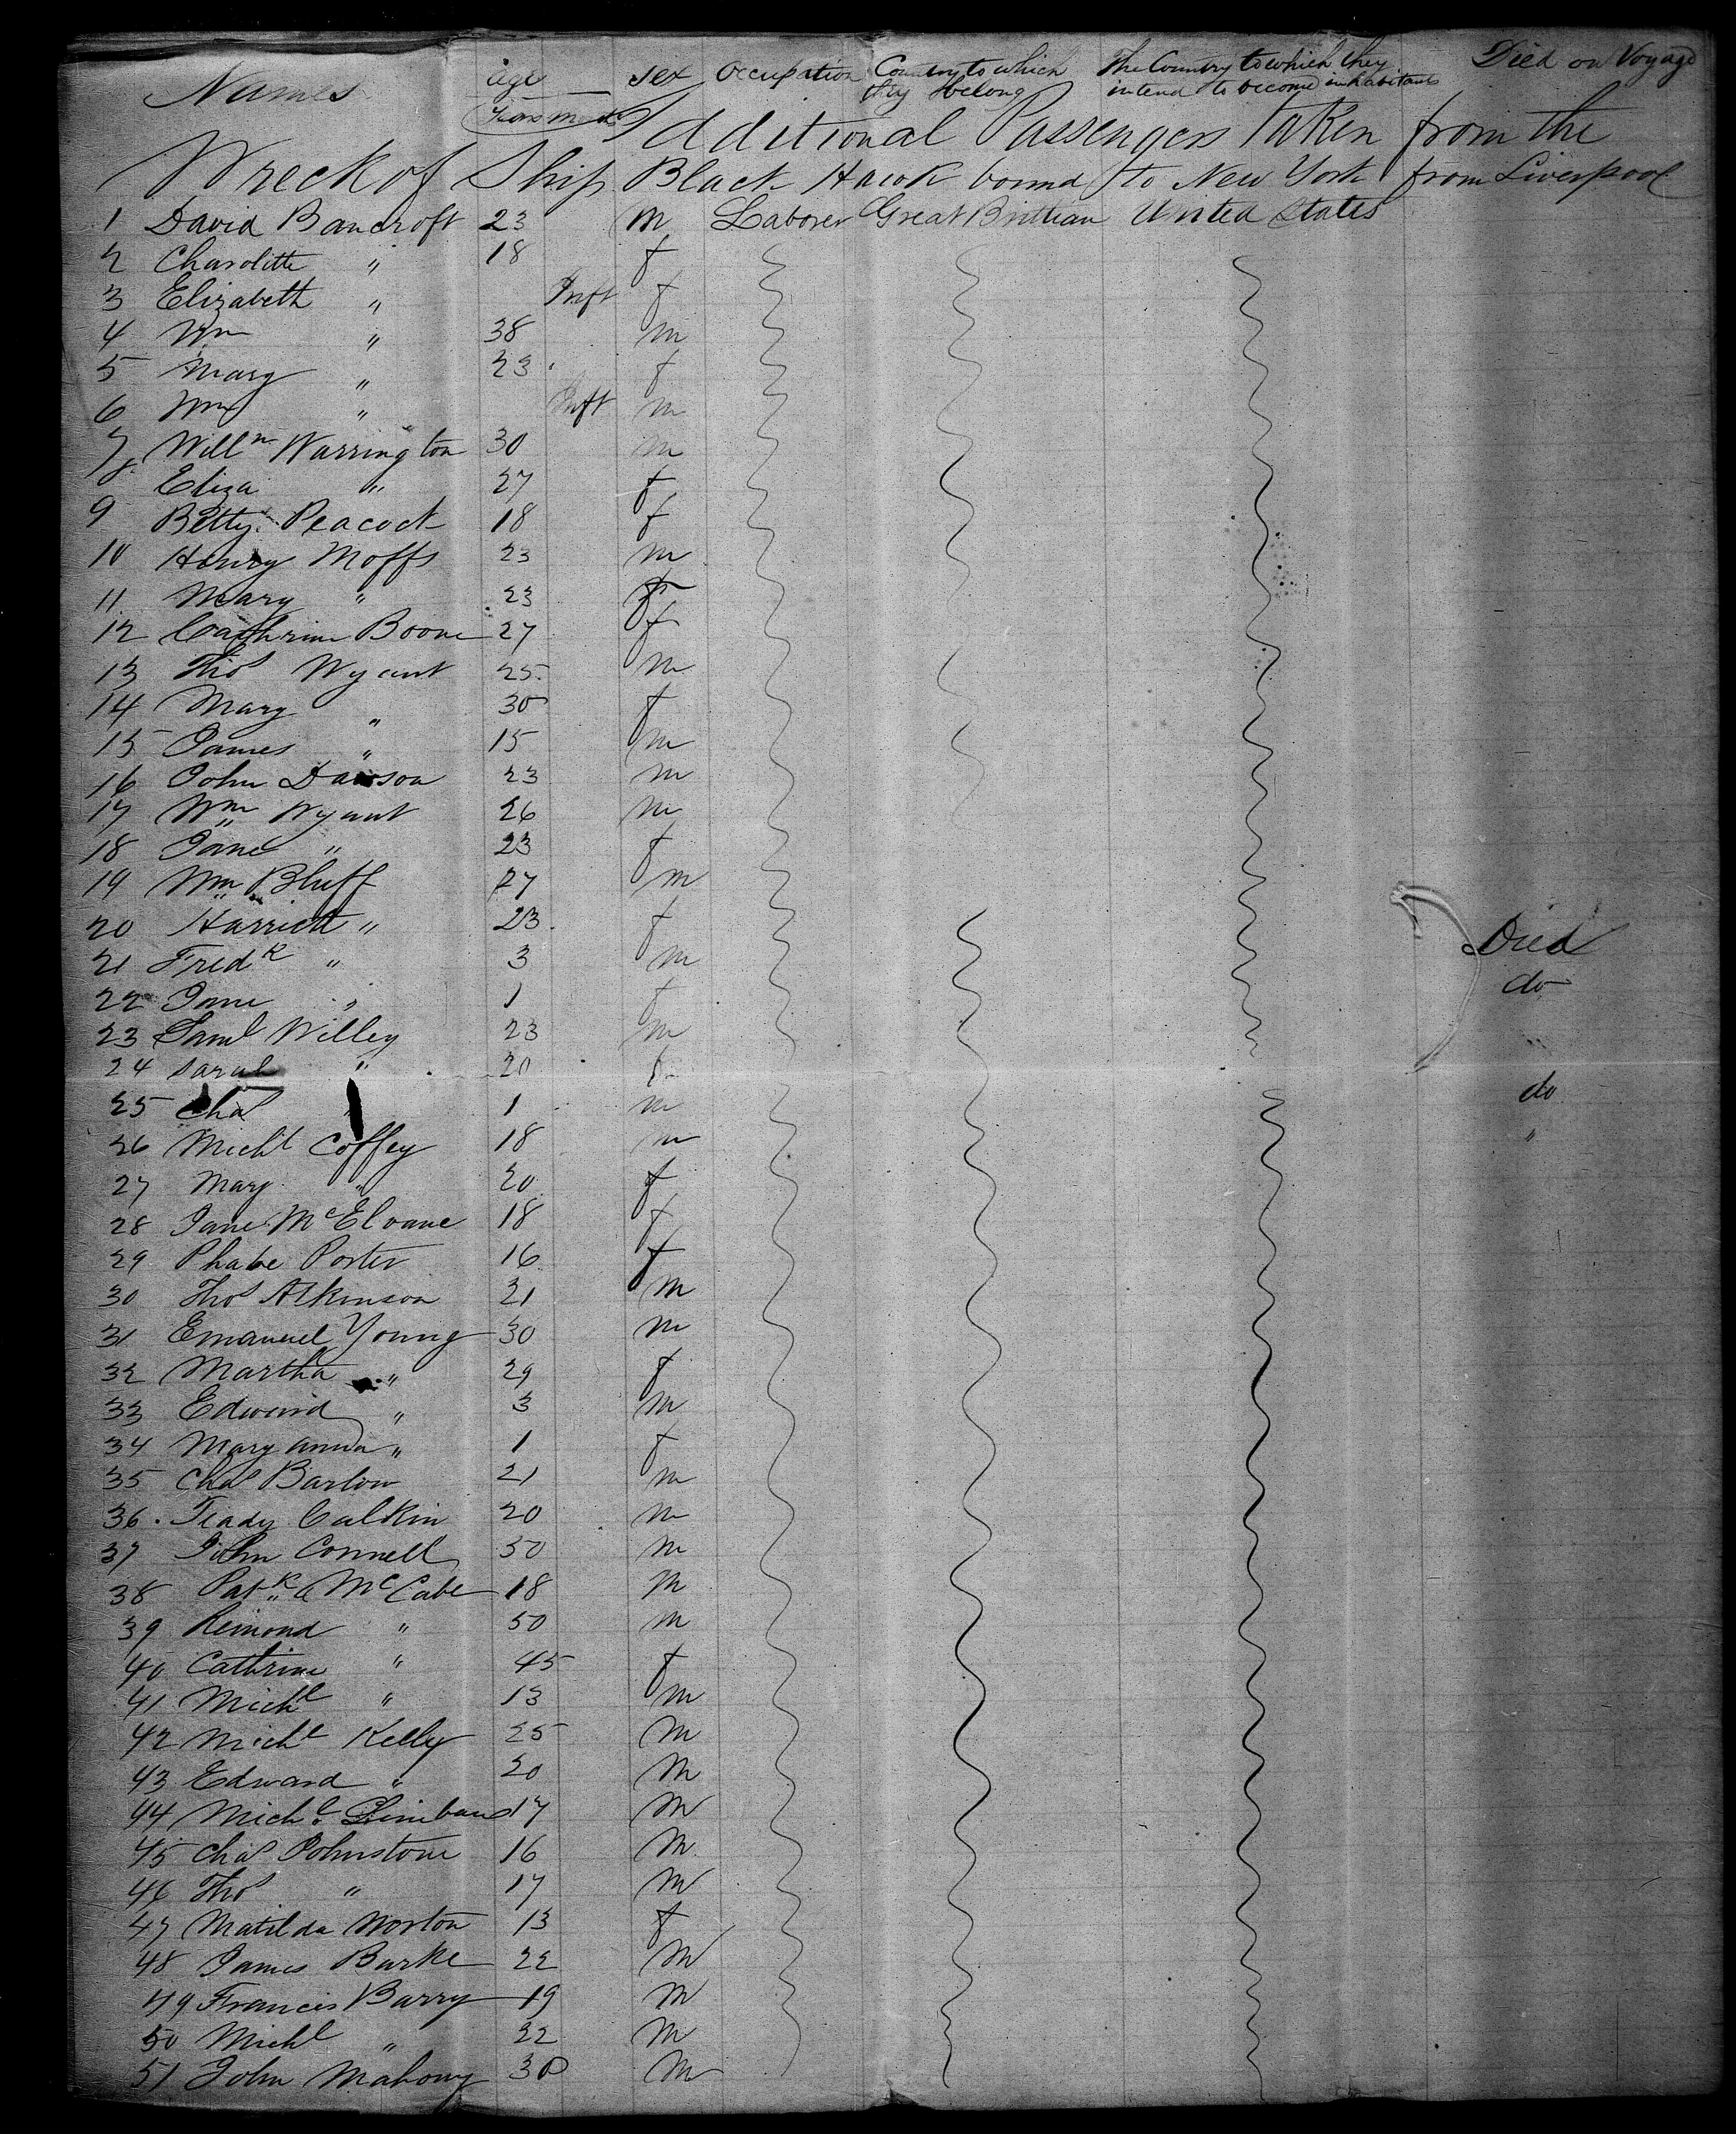 Names age sex Occupation Country to which they belong The Country to which they intend to become inhabitants Died on Voyage
Years
Additional Passengers Taken from the
Wreck of Ship Black Hawk bound to New York from Liverpool
1 David Bancroft 23 m Laborer Great Brittian United States
2 Charolitte " 18 f
3 Elizabeth " Inft f
4 Wm " 38 m
5 Mary " 23 f
6 Wm " Inft m
7 Willm Warrington 30 m
8 Eliza " 27 f
9 Betty Peacock 18 f
10 Henry Moffs 23 m
11 Mary " 23 f
12 Cathrine Boone 27 f
13 Thos Wyant 25 m
14 Mary " 30 f
15 James " 15 m
16 John Dawson 23 m
17 Wm Wyant 26 m
18 Jane " 23 f
19 Wm Bluff 27 m
20 Harriett " 23 f
21 Fredk " 3 m Died
22 Jane " 1 f do
23 Saml Willey 23 m
24 Sarah " 20 f
25 Chas " 1 m do
26 Michl Coffey 18 m "
27 Mary " 20 f
28 Jane McEloane 18 f
29 Phabe Porter 16 f
30 Thos Atkinson 21 m
31 Emanuel Young 30 m
32 Martha " 29 f
33 Edward " 3 m
34 Mary anna " 1 f
35 Chas Barlow 21 m
36 Teady Calkin 20 m
37 John Connell 50 m
38 Patk McCabe 18 m
39 Remond " 50 m
40 Cathrine " 45 f
41 Michl " 13 m
42 Michl Kelly 25 m
43 Edward " 20 m
44 Michl 17 m
45 Chas Johnstone 16 m
46 Thos " 17 m
47 Matilda Norton 13 f
48 James Burke 22 m
49 Francis Barry 19 m
50 Michl " 22 m
51 John Mahony 30 m